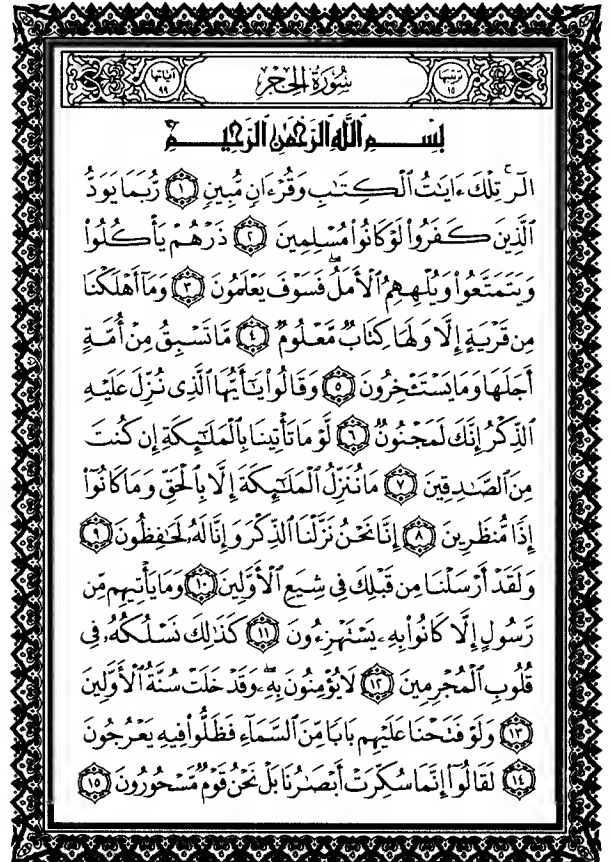 آياتها ٩٩ سُورَةُ الحِجْرِ ترتيبها ١٥
بِسْمِ ٱللَّهِ ٱلرَّحْمَٰنِ ٱلرَّحِيمِ
الٓر ۚ تِلْكَ ءَايَٰتُ ٱلْكِتَٰبِ وَقُرْءَانٍ مُّبِينٍ ١ رُّبَمَا يَوَدُّ
ٱلَّذِينَ كَفَرُوا۟ لَوْ كَانُوا۟ مُسْلِمِينَ ٢ ذَرْهُمْ يَأْكُلُوا۟
وَيَتَمَتَّعُوا۟ وَيُلْهِهِمُ ٱلْأَمَلُ ۖ فَسَوْفَ يَعْلَمُونَ ٣ وَمَآ أَهْلَكْنَا
مِن قَرْيَةٍ إِلَّا وَلَهَا كِتَابٌ مَّعْلُومٌ ٤ مَّا تَسْبِقُ مِنْ أُمَّةٍ
أَجَلَهَا وَمَا يَسْتَـْٔخِرُونَ ٥ وَقَالُوا۟ يَٰٓأَيُّهَا ٱلَّذِى نُزِّلَ عَلَيْهِ
ٱلذِّكْرُ إِنَّكَ لَمَجْنُونٌ ٦ لَّوْ مَا تَأْتِينَا بِٱلْمَلَٰٓئِكَةِ إِن كُنتَ
مِنَ ٱلصَّٰدِقِينَ ٧ مَا نُنَزِّلُ ٱلْمَلَٰٓئِكَةَ إِلَّا بِٱلْحَقِّ وَمَا كَانُوٓا۟
إِذًا مُّنظَرِينَ ٨ إِنَّا نَحْنُ نَزَّلْنَا ٱلذِّكْرَ وَإِنَّا لَهُۥ لَحَٰفِظُونَ ٩
وَلَقَدْ أَرْسَلْنَا مِن قَبْلِكَ فِى شِيَعِ ٱلْأَوَّلِينَ ١٠ وَمَا يَأْتِيهِم مِّن
رَّسُولٍ إِلَّا كَانُوا۟ بِهِۦ يَسْتَهْزِءُونَ ١١ كَذَٰلِكَ نَسْلُكُهُۥ فِى
قُلُوبِ ٱلْمُجْرِمِينَ ١٢ لَا يُؤْمِنُونَ بِهِۦ ۖ وَقَدْ خَلَتْ سُنَّةُ ٱلْأَوَّلِينَ
١٣ وَلَوْ فَتَحْنَا عَلَيْهِم بَابًا مِّنَ ٱلسَّمَآءِ فَظَلُّوا۟ فِيهِ يَعْرُجُونَ
١٤ لَقَالُوٓا۟ إِنَّمَا سُكِّرَتْ أَبْصَٰرُنَا بَلْ نَحْنُ قَوْمٌ مَّسْحُورُونَ ١٥